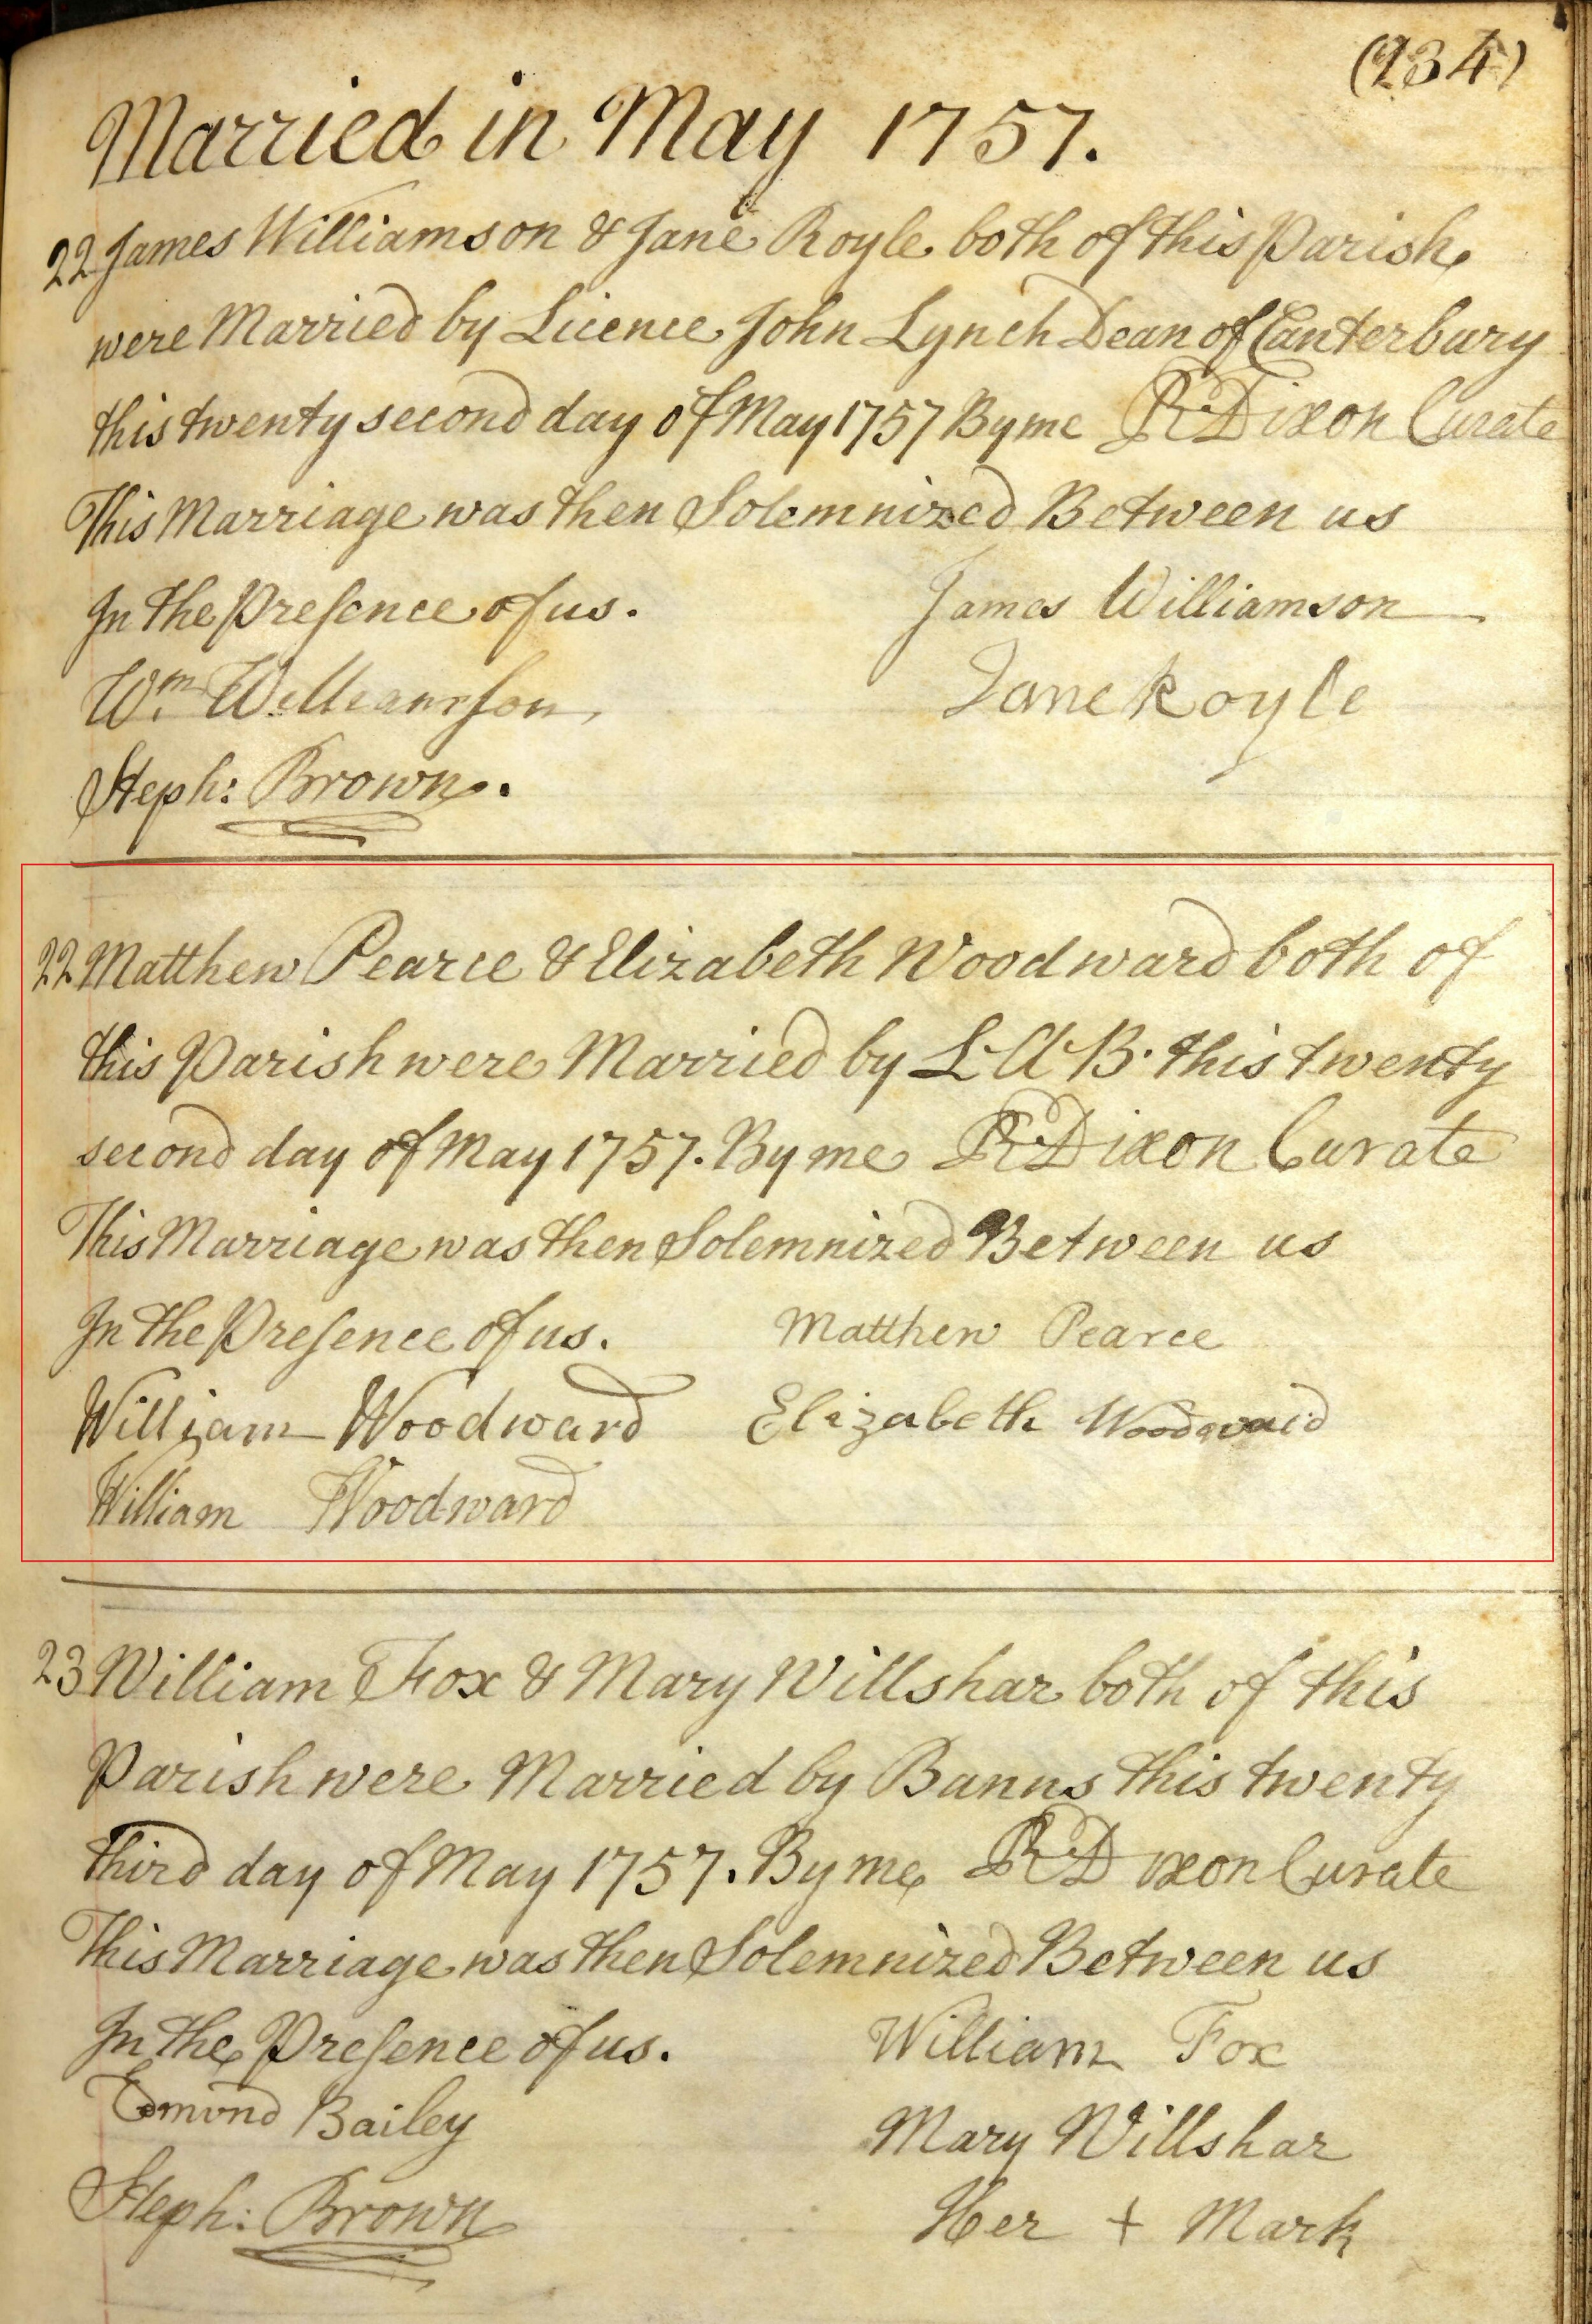 (234)
Married in May 1757.
22 James Williamson & Jane Royle both of this Parish
were Married by Licence John Lynch Dean of Canterbury
this twenty second day of May 1757 By me R Dixon Curate
This Marriage was then Solemnized Between us
In the Presence of us. James Williamson
Wm. Williamson Jane Royle
Steph: Brown.
22 Matthew Pearce & Elizabeth Woodward both of
this Parish were Married by L A B. this twenty
second day of May 1757. By me R Dixon Curate
This Marriage was then Solemnized Between us
In the Presence of us. Matthew Pearce
William Woodward Elizabeth Woodward
William Woodward
23 William Fox & Mary Willshar both of this
Parish were Married by Banns this twenty
third day of May 1757. By me R Dixon Curate
This Marriage was then Solemnized Between us
In the Presence of us. William Fox
Edmond Bailey Mary Willshar
Steph: Brown Her + Mark